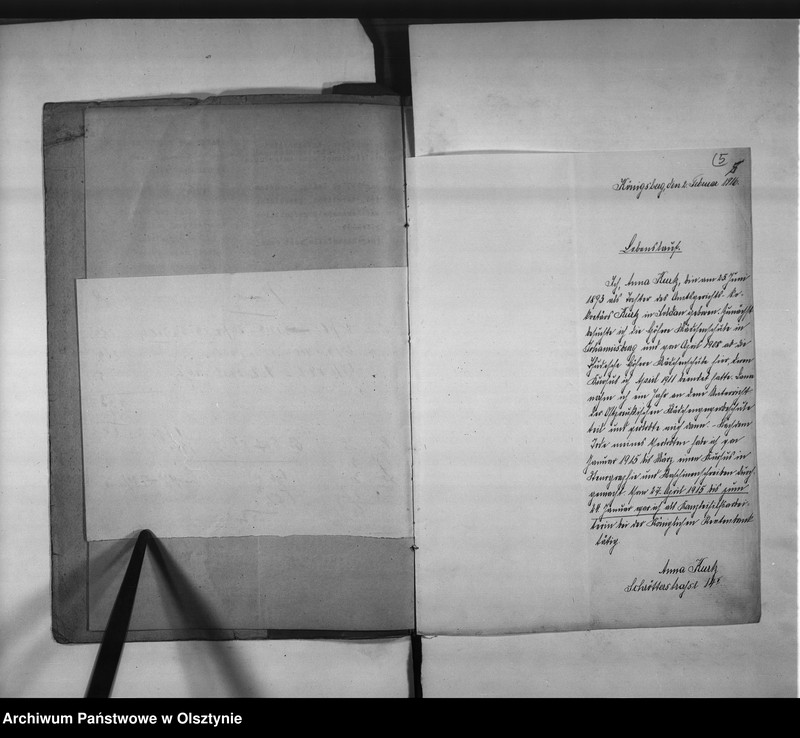 (5
Königsberg, den 2. Februar 1916.
Lebenslauf.
Ich, Anna Kurtz, bin am 25. Juni
1893 als Tochter des Amtsgerichts-Se-
kretärs Kurtz in Soldau geboren. Zunächst
besuchte ich die höhere Mädchenschule in
Johannisburg und von April 1908 ab die
höhere Mädchenschule hier, deren
Kursus ich April 1911 beendet hatte. Dann
nahm ich ein Jahr an dem Unterricht
der Ostpreußischen Mädchengewerbeschule
teil und verlobte mich dann. – Nach dem
Tode meines Verlobten habe ich von
Januar 1915 bis März einen Kursus in
Stenographie und Maschinenschreiben durch-
gemacht. Vom 27. April 1915 bis zum
24. Januar war ich als Kanzleihilfsarbei-
terin bei der Königlichen Rentenbank
tätig.
Anna Kurtz
Schrötterstraße
Archiwum Państwowe w Olsztynie